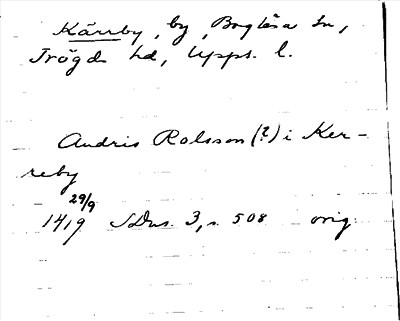 Kärrby, by, Boglösa sn,
Trögds hd, Upps. l.
Andris Rolsson (?) i Ker-
reby
29/9
1419 SDns. 3, s. 508 orig.